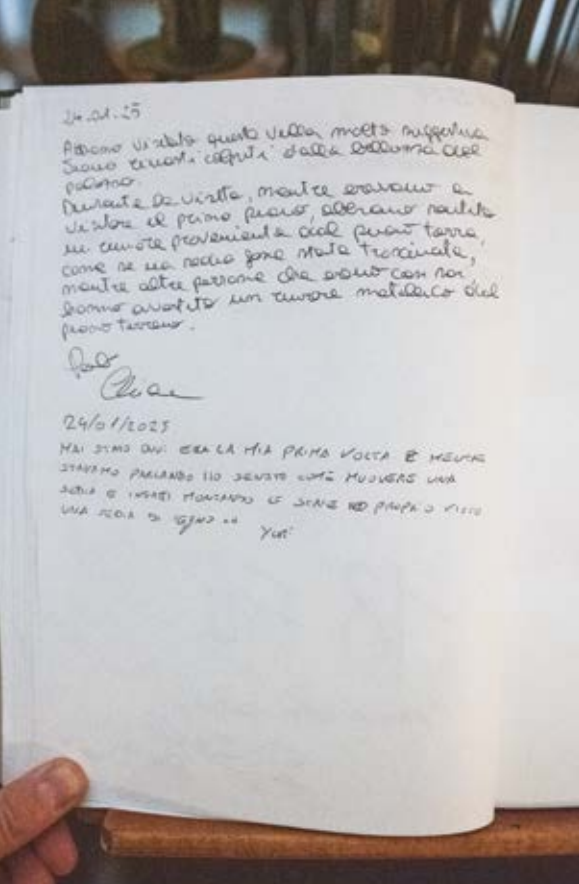 24.01.25
Abbiamo visitato questa villa molto suggestiva
Siamo rimasti colpiti dalla bellezza del
palazzo.
Durante la visita, mentre eravamo a
visitare il primo piano, abbiamo sentito
un rumore proveniente dal piano terra,
come se una sedia fosse stata trascinata,
mentre altre persone che erano con noi
hanno avvertito un rumore metallico dal
piano terreno.
24/01/2025
MAI STATO QUI ERA LA MIA PRIMA VOLTA E MENTRE
STAVAMO PARLANDO HO SENTITO COME MUOVERE UNA
SEDIA E INFATTI MONTANDO LE SCALE HO PROPRIO VISTO
UNA SEDIA DI LEGNO
Yuri